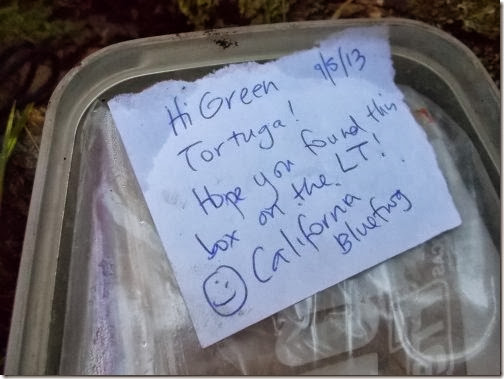 Hi Green 9/5/13
Tortuga!
Hope you found this
box on the LT!
California
Bluefrog